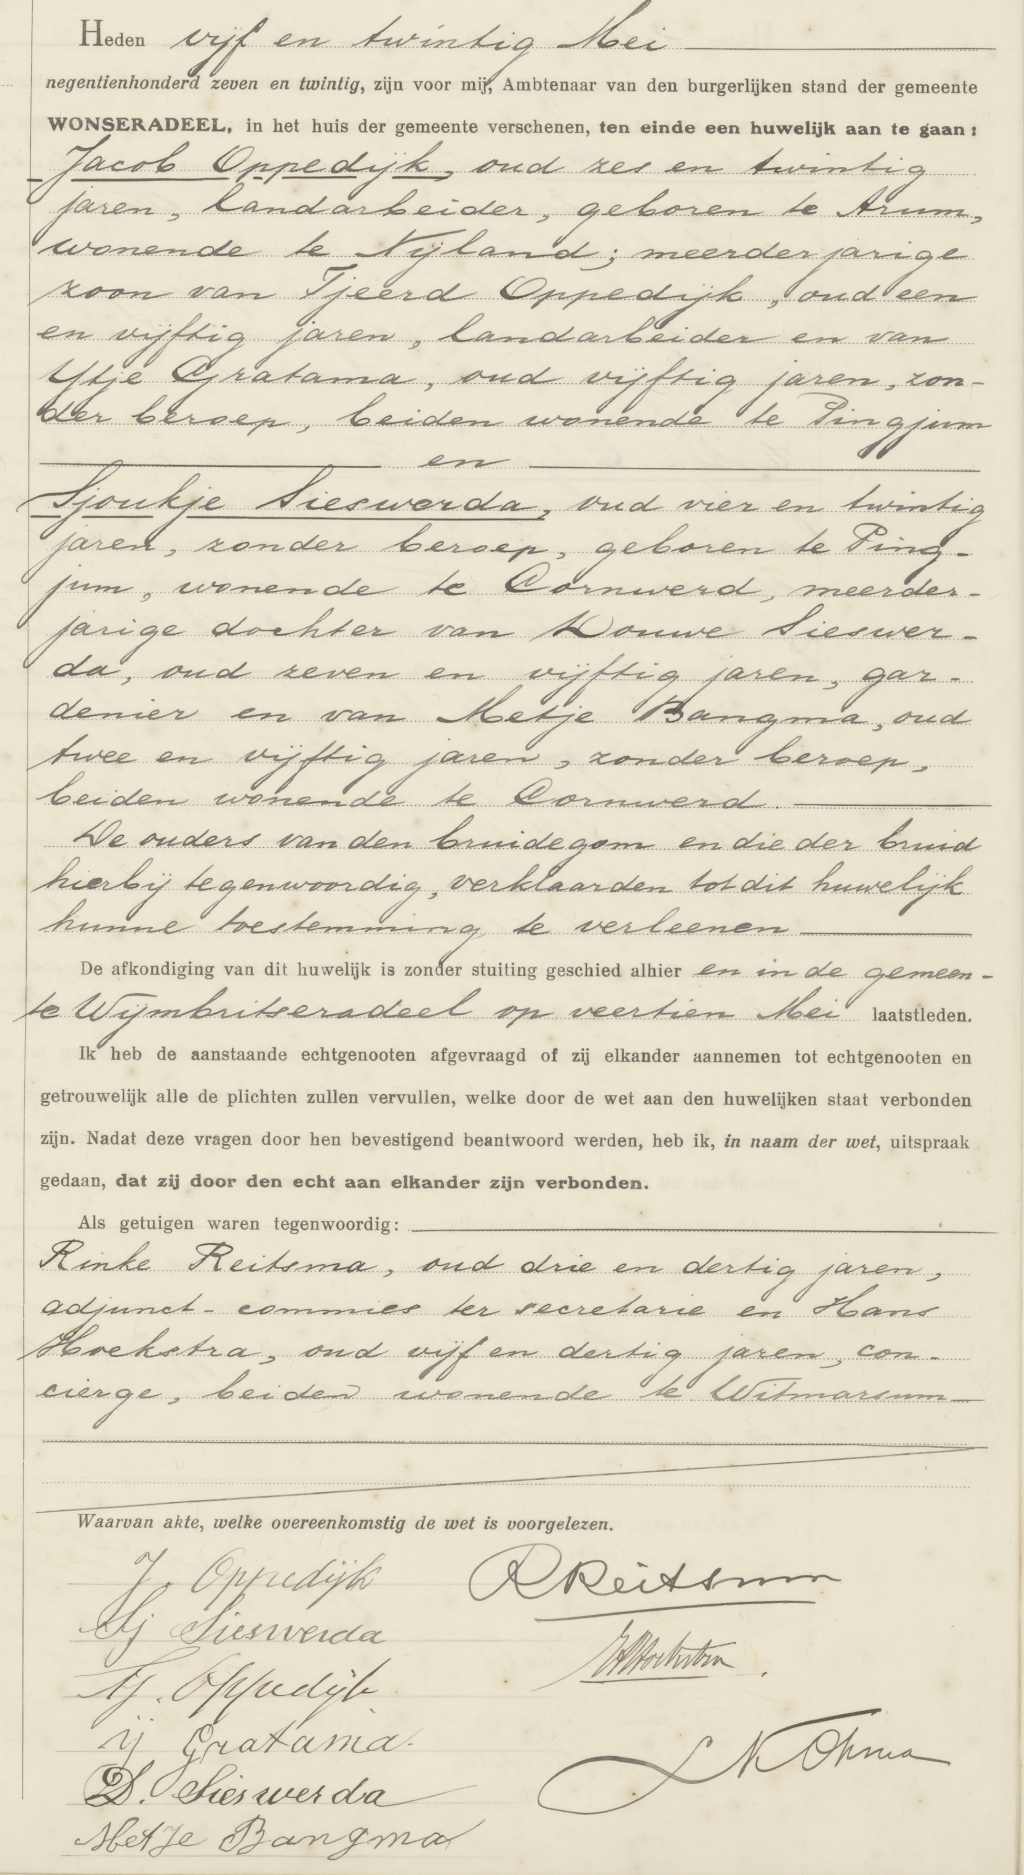 Heden vijf en twintig Mei
negentienhonderd zeven en twintig, zijn voor mij, Ambtenaar van den burgerlijken stand der gemeente
WONSERADEEL, in het huis der gemeente verschenen, ten einde een huwelijk aan te gaan:
Jacob Oppedijk, oud zes en twintig
jaren, landarbeider, geboren te Arum,
wonende te Nijland; meerderjarige
zoon van Tjeerd Oppedijk, oud een
en vijftig jaren, landarbeider en van
Ytje Gratama, oud vijftig jaren, zon-
der beroep, beiden wonende te Pingjum
en
Sjoukje Sieswerda, oud vier en twintig
jaren, zonder beroep, geboren te Ping-
jum, wonende te Cornwerd, meerder-
jarige dochter van Douwe Sieswer-
da, oud zeven en vijftig jaren, gar-
denier en van Metje Bangma, oud
twee en vijftig jaren, zonder beroep,
beiden wonende te Cornwerd.
De ouders van den bruidegom en die der bruid
hierbij tegenwoordig, verklaarden tot dit huwelijk
hunne toestemming te verleenen
De afkondiging van dit huwelijk is zonder stuiting geschied alhier en in de gemeen-
te Wijmbritseradeel op veertien Mei laatstleden.
Ik heb de aanstaande echtgenooten afgevraagd of zij elkander aannemen tot echtgenooten en
getrouwelijk alle de plichten zullen vervullen, welke door de wet aan den huwelijken staat verbonden
zijn. Nadat deze vragen door hen bevestigend beantwoord werden, heb ik, in naam der wet, uitspraak
gedaan, dat zij door den echt aan elkander zijn verbonden.
Als getuigen waren tegenwoordig:
Rinke Reitsma, oud drie en dertig jaren,
adjunct-commies ter secretarie en Hans
Hoekstra, oud vijf en dertig jaren, con-
cierge, beiden wonende te Witmarsum
Waarvan akte, welke overeenkomstig de wet is voorgelezen.
J. Oppedijk
RReitsma
Sj Sieswerda
HHoekstra.
Tj. Oppedijk
ij Gratama.
N Okma
D. Sieswerda
Metje Bangma